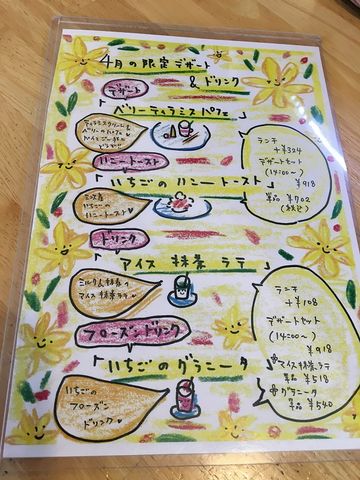 4月の限定デザート
&ドリンク
デザート
「ベリーティラミスパフェ」
ティラミスクリームと
ベリーのパフェ
ハニートースト
「いちごのハニートースト」
いちごの
ハニートースト♥
ランチ
+¥324
デザートセット
(14:00〜)
¥918
単品 ¥702
(税込)
ドリンク
「アイス抹茶ラテ」
ミルクと抹茶の
アイス抹茶ラテ♥
フローズンドリンク
「いちごのグラニータ」
いちごの
フローズン
ドリンク♥
ランチ
+¥108
デザートセット
(14:00〜)
¥918
アイス抹茶ラテ
単品 ¥518
グラニータ
単品 ¥540